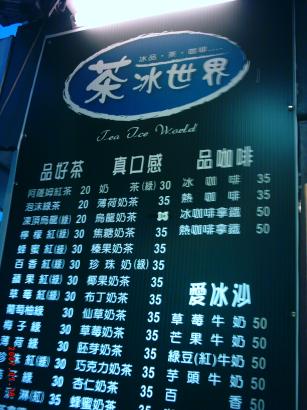 冰品·茶·咖啡....
茶冰世界
Tea Ice World
品好茶
阿薩姆紅茶 20
泡沫綠茶 20
凍頂烏龍(綠) 20
檸檬紅(綠) 30
蜂蜜紅(綠) 30
百香紅(綠) 30
蘋果紅(綠) 30
草莓紅(綠) 30
葡萄柚綠 30
梅子綠 30
薄荷綠 30
珍珠紅(綠) 30
真口感
奶茶(綠) 30
薄荷奶茶 35
烏龍奶茶 35
焦糖奶茶 35
榛果奶茶 35
珍珠奶(綠) 35
椰果奶茶 35
布丁奶茶 35
仙草奶茶 35
草莓奶茶 35
胚芽奶茶 35
巧克力奶茶 35
杏仁奶茶 35
蜂蜜奶茶 35
品咖啡
冰咖啡 35
熱咖啡 35
冰咖啡拿鐵 50
熱咖啡拿鐵 50
愛冰沙
草莓牛奶 50
芒果牛奶 50
綠豆(紅)牛奶 50
芋頭牛奶 50
百香 50